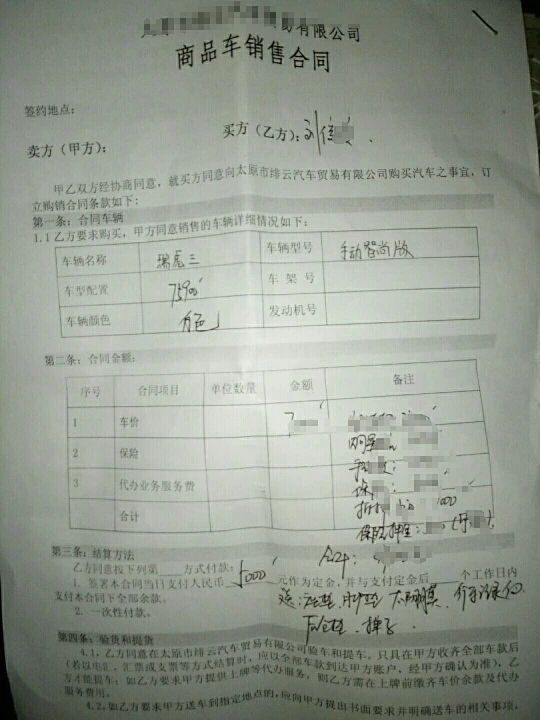 易有限公司
商品车销售合同
签约地点:
买方(乙方): 刘佳
卖方(甲方):
甲乙双方经协商同意,就买方同意向太原市绯云汽车贸易有限公司购买汽车之事宜,订
立购销合同条款如下:
第一条:合同车辆
1.1乙方要求购买,甲方同意销售的车辆详细情况如下:
车辆名称 瑞虎三 车辆型号 手动智尚版
车型配置 75900 车架号
车辆颜色 白色 发动机号
第二条:合同金额:
序号 合同项目 单位数量 金额 备注
1 车价
2 保险
3 代办业务服务费
合计
1000
保险押金:
第三条:结算方法
合计:
乙方同意按下列第____方式付款:
1. 签署本合同当日支付人民币 5000 元作为定金,并与支付定金后____个工作日内
支付本合同下全部余款。
送: 太阳膜 行车记录仪
2. 一次性付款。
第四条:验货和提货
4.1、乙方同意在太原市绯云汽车贸易有限公司验车和提车。只具在甲方收齐全部车款后
(若以电汇、汇票或支票等方式结算时,应以全部车款到达甲方账户,经甲方确认为准),乙
方才能提车;如乙方要求甲方提供上牌等代办服务,则乙方需在上牌前缴齐车价余款及代办
服务费用。
4.2、如乙方要求甲方送车到指定地点的,应向甲方提出书面要求并明确送车的相关事项,